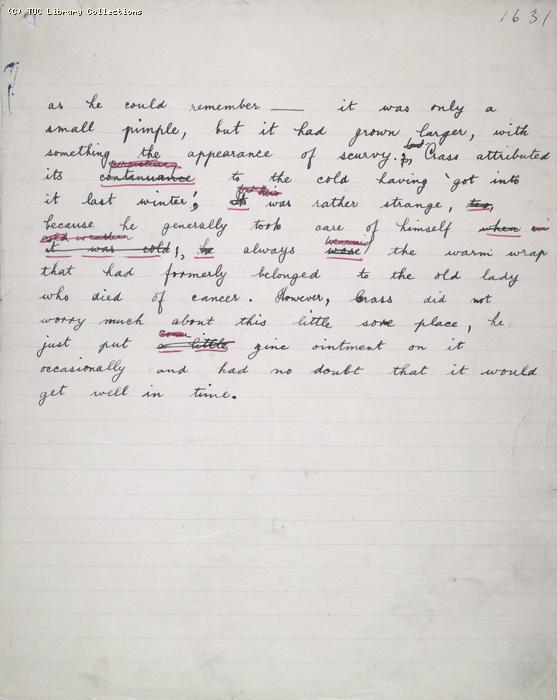 (C) TUC Library Collections
1631
as he could remember — it was only a
small pimple, but it had grown larger, with
something the appearance of scurvy. Crass attributed
its continuance to the cold having 'got into
it last winter', It was rather strange, too,
because he generally took care of himself when
it was cold, he always wore the warm wrap
that had formerly belonged to the old lady
who died of cancer. However, Crass did not
worry much about this little sore place, he
some
just put a little zinc ointment on it
occasionally and had no doubt that it would
get well in time.